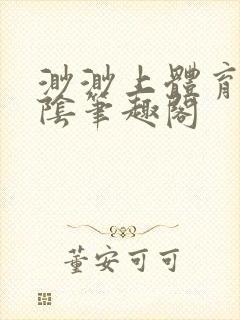 渺渺上體育
陰筆趣閣
董安可可